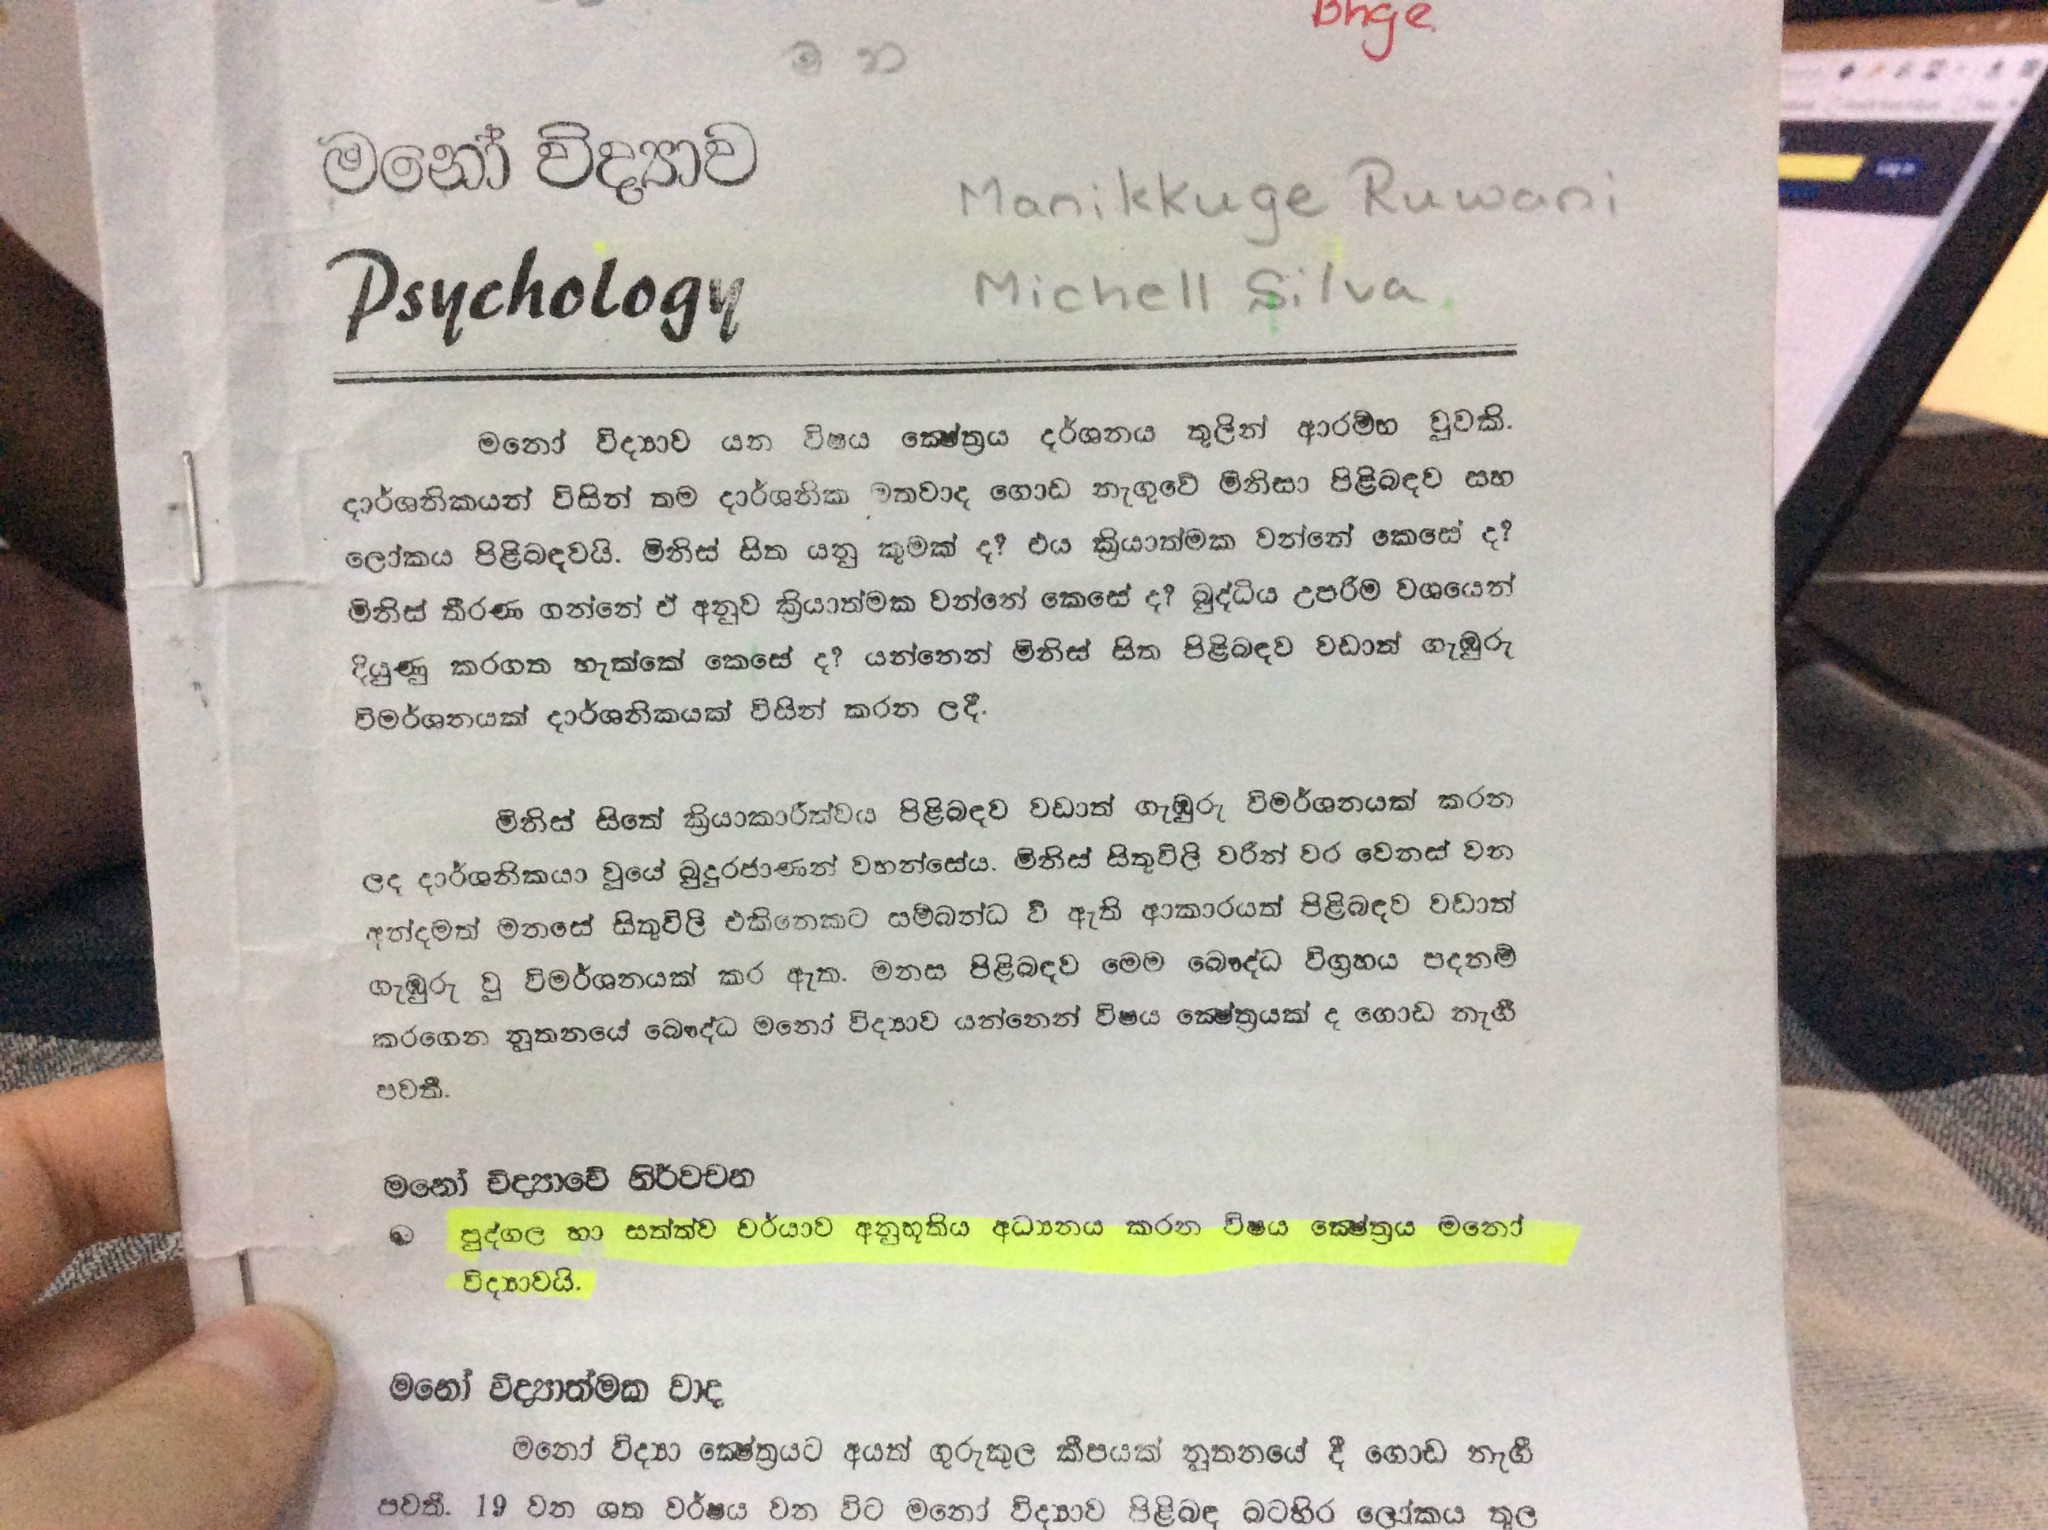 Bhge
ම න
මනෝ විද්‍යාව
Manikkuge Ruwani
Psychology
Michell Silva
මනෝ විද්‍යාව යන විෂය ක්ෂේත්‍රය දර්ශනය තුලින් ආරම්භ වූවකි.
දාර්ශනිකයන් විසින් තම දාර්ශනික මතවාද ගොඩ නැගුවේ මිනිසා පිළිබඳව සහ
ලෝකය පිළිබඳවයි. මිනිස් සිත යනු කුමක් ද? එය ක්‍රියාත්මක වන්නේ කෙසේ ද?
මිනිස් තීරණ ගන්නේ ඒ අනුව ක්‍රියාත්මක වන්නේ කෙසේ ද? බුද්ධිය උපරිම වශයෙන්
දියුණු කරගත හැක්කේ කෙසේ ද? යන්නෙන් මිනිස් සිත පිළිබඳව වඩාත් ගැඹුරු
විමර්ශනයක් දාර්ශනිකයක් විසින් කරන ලදී.
මිනිස් සිතේ ක්‍රියාකාරීත්වය පිළිබඳව වඩාත් ගැඹුරු විමර්ශනයක් කරන
ලද දාර්ශනිකයා වූයේ බුදුරජාණන් වහන්සේය. මිනිස් සිතුවිලි වරින් වර වෙනස් වන
අන්දමත් මනසේ සිතුවිලි එකිනෙකට සම්බන්ධ වී ඇති ආකාරයත් පිළිබඳව වඩාත්
ගැඹුරු වූ විමර්ශනයක් කර ඇත. මනස පිළිබඳව මෙම බෞද්ධ විග්‍රහය පදනම්
කරගෙන නූතනයේ බෞද්ධ මනෝ විද්‍යාව යන්නෙන් විෂය ක්ෂේත්‍රයක් ද ගොඩ නැගී
පවතී.
මනෝ විද්‍යාවේ නිර්වචන
පුද්ගල හා සත්ත්ව චර්යාව අනුභූතිය අධ්‍යනය කරන විෂය ක්ෂේත්‍රය මනෝ
විද්‍යාවයි.
මනෝ විද්‍යාත්මක වාද
මනෝ විද්‍යා ක්ෂේත්‍රයට අයත් ගුරුකුල කීපයක් නූතනයේ දී ගොඩ නැගී
පවතී. 19 වන ශත වර්ෂය වන විට මනෝ විද්‍යාව පිළිබඳ බටහිර ලෝකය තුල